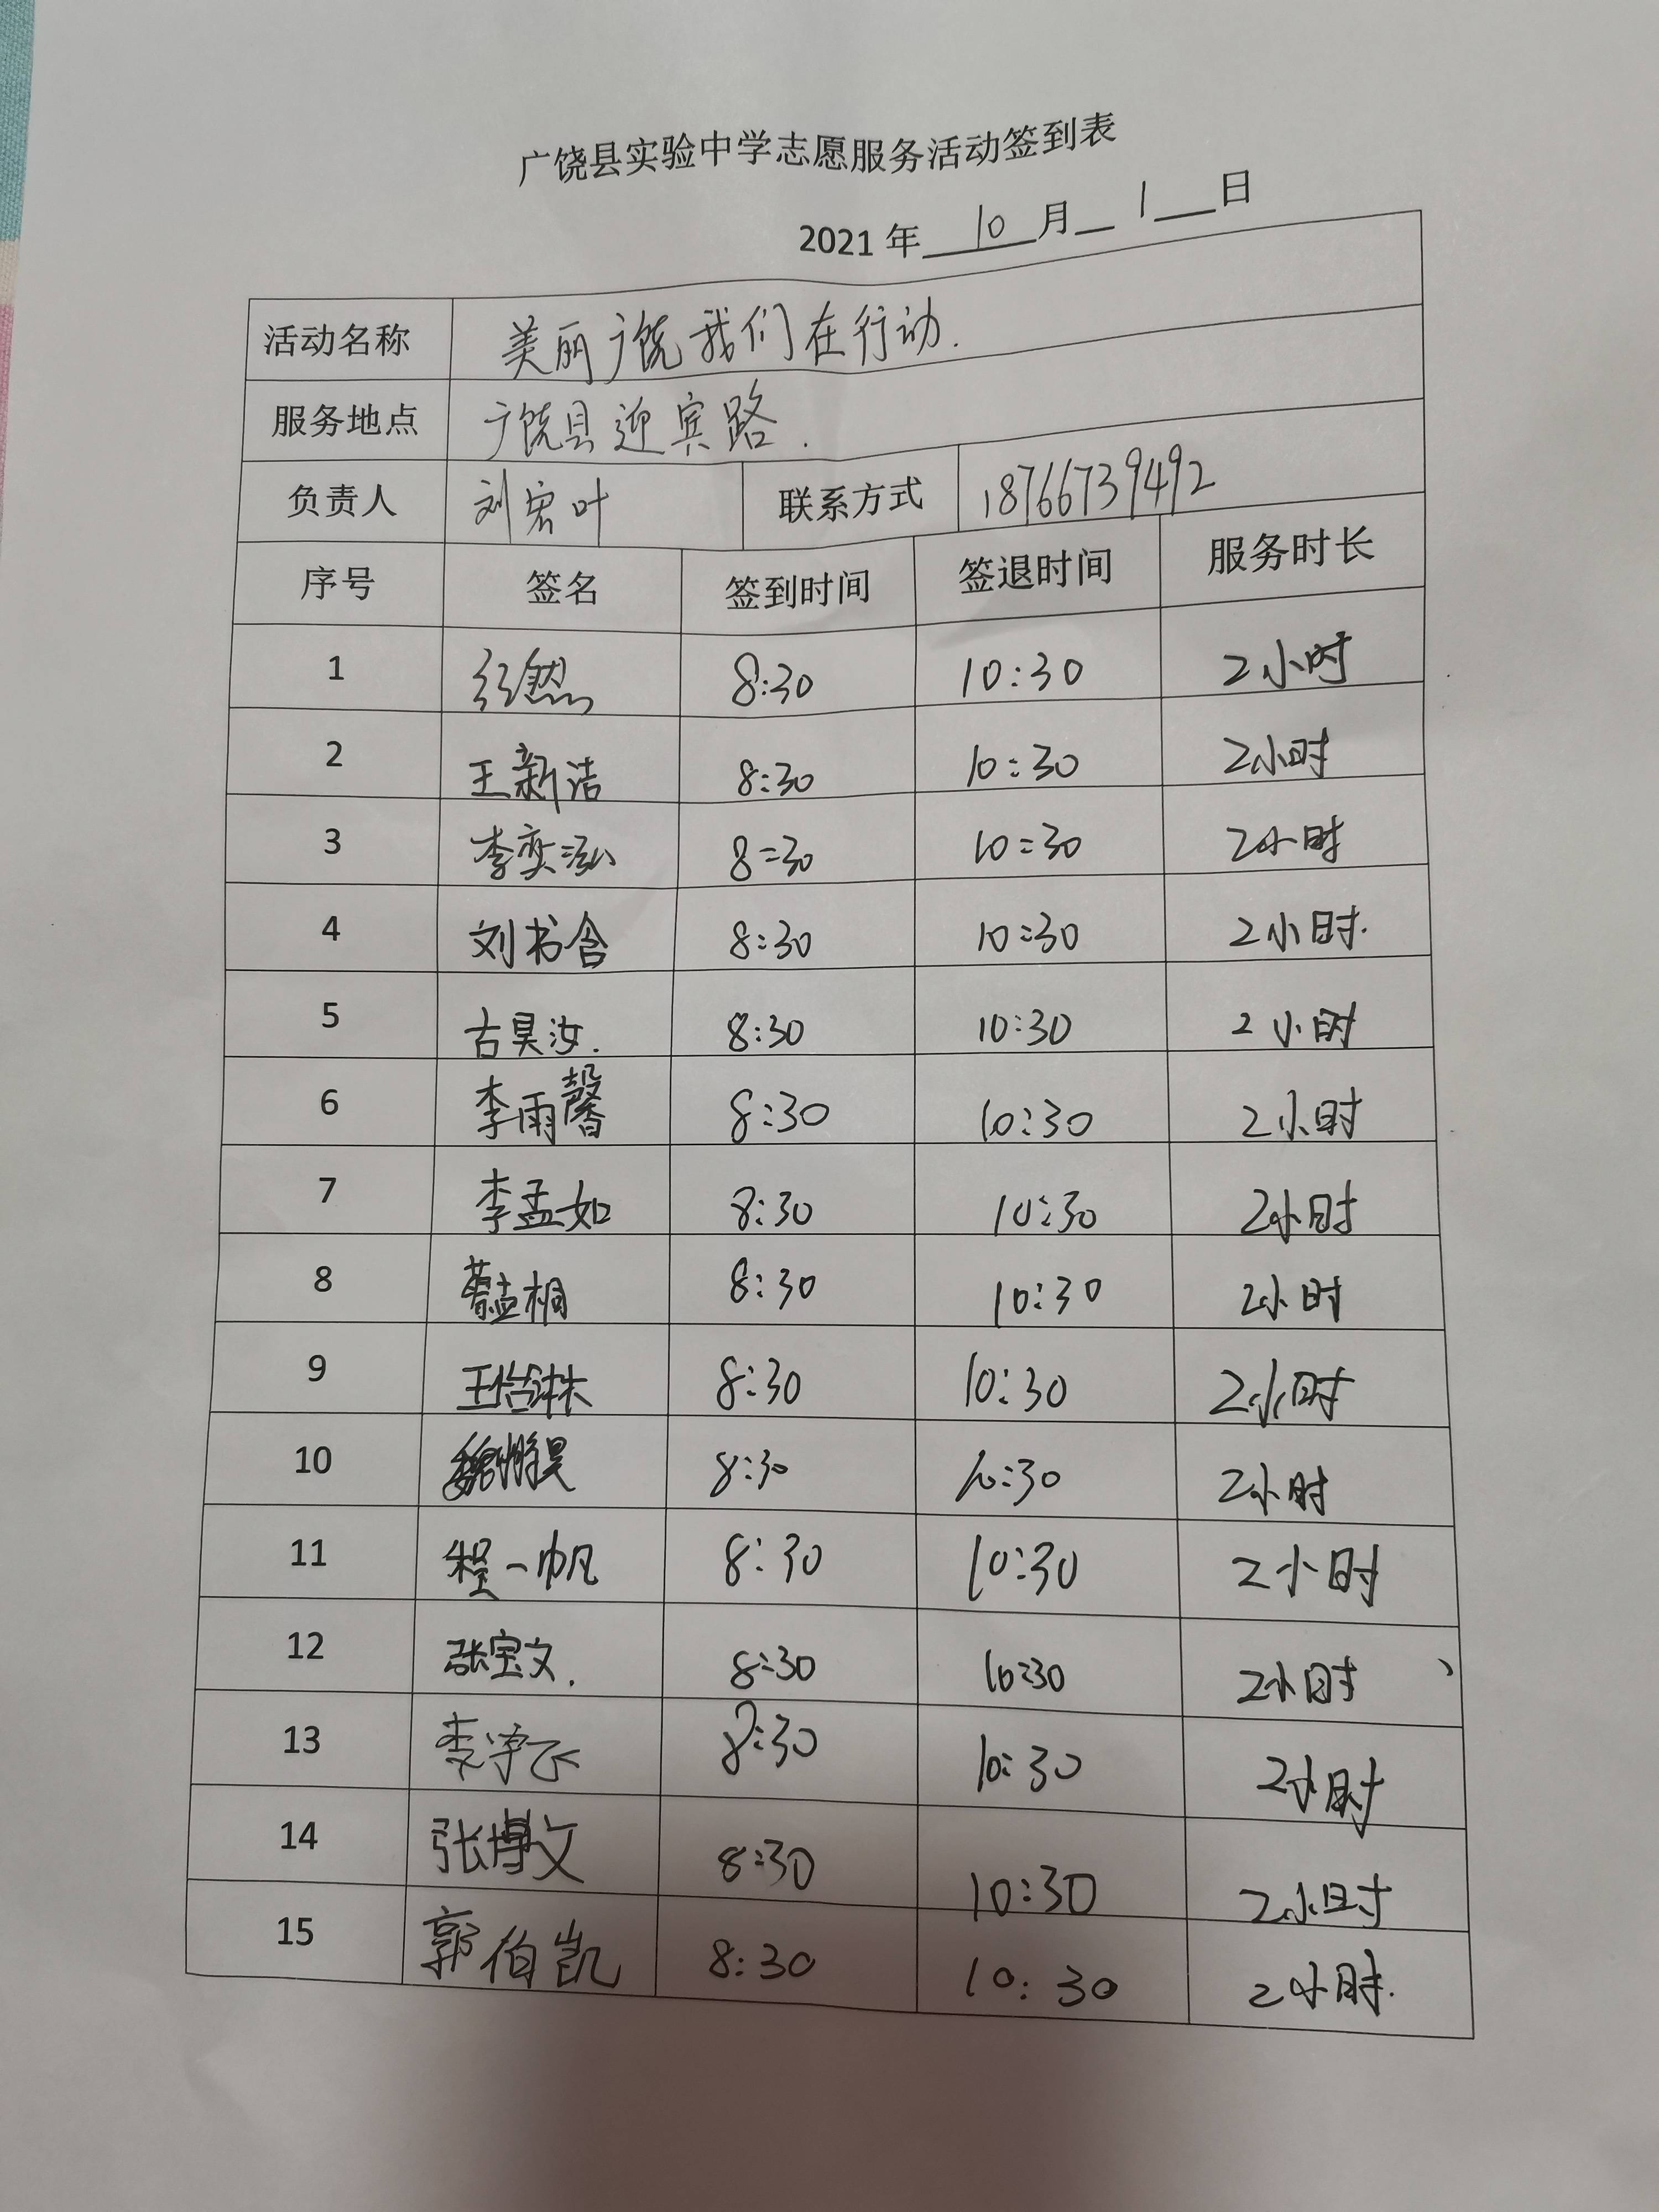 广饶县实验中学志愿服务活动签到表
2021 年 10 月 1 日
活动名称 美丽广饶我们在行动.
服务地点 广饶县迎宾路.
负责人 刘宏叶 联系方式 18766739492
序号 签名 签到时间 签退时间 服务时长
1 8:30 10:30 2小时
2 王新洁 8:30 10:30 2小时
3 李奕泓 8:30 10:30 2小时
4 刘书含 8:30 10:30 2小时.
5 古昊汝. 8:30 10:30 2小时
6 李雨馨 8:30 10:30 2小时
7 李孟如 8:30 10:30 2小时
8 8:30 10:30 2小时
9 王怡琳 8:30 10:30 2小时
10 8:30 10:30 2小时
11 程一帆 8:30 10:30 2小时
12 张宝文. 8:30 10:30 2小时
13 8:30 10:30 2小时
14 张博文 8:30 10:30 2小时
15 郭伯凯 8:30 10:30 2小时.